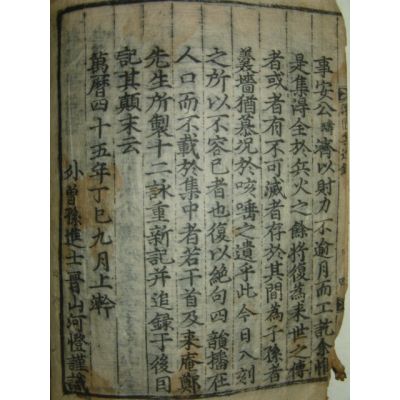 事安公疇濟以財力不逾月而工訖余惟
是集得全於兵火之餘將復爲來世之傳
者或者有不可滅者存於其間爲子孫者
羹墻猶慕况於咳唾之遺乎此今日入刻
之所以不容已者也復以絶句四韻播在
人口而不載於集中者若干首及來庵鄭
先生所製十二詠重新記并追録于後目
記其顛末云
萬曆四十五年丁巳九月上澣
外曾孫進士晋山河憕謹識